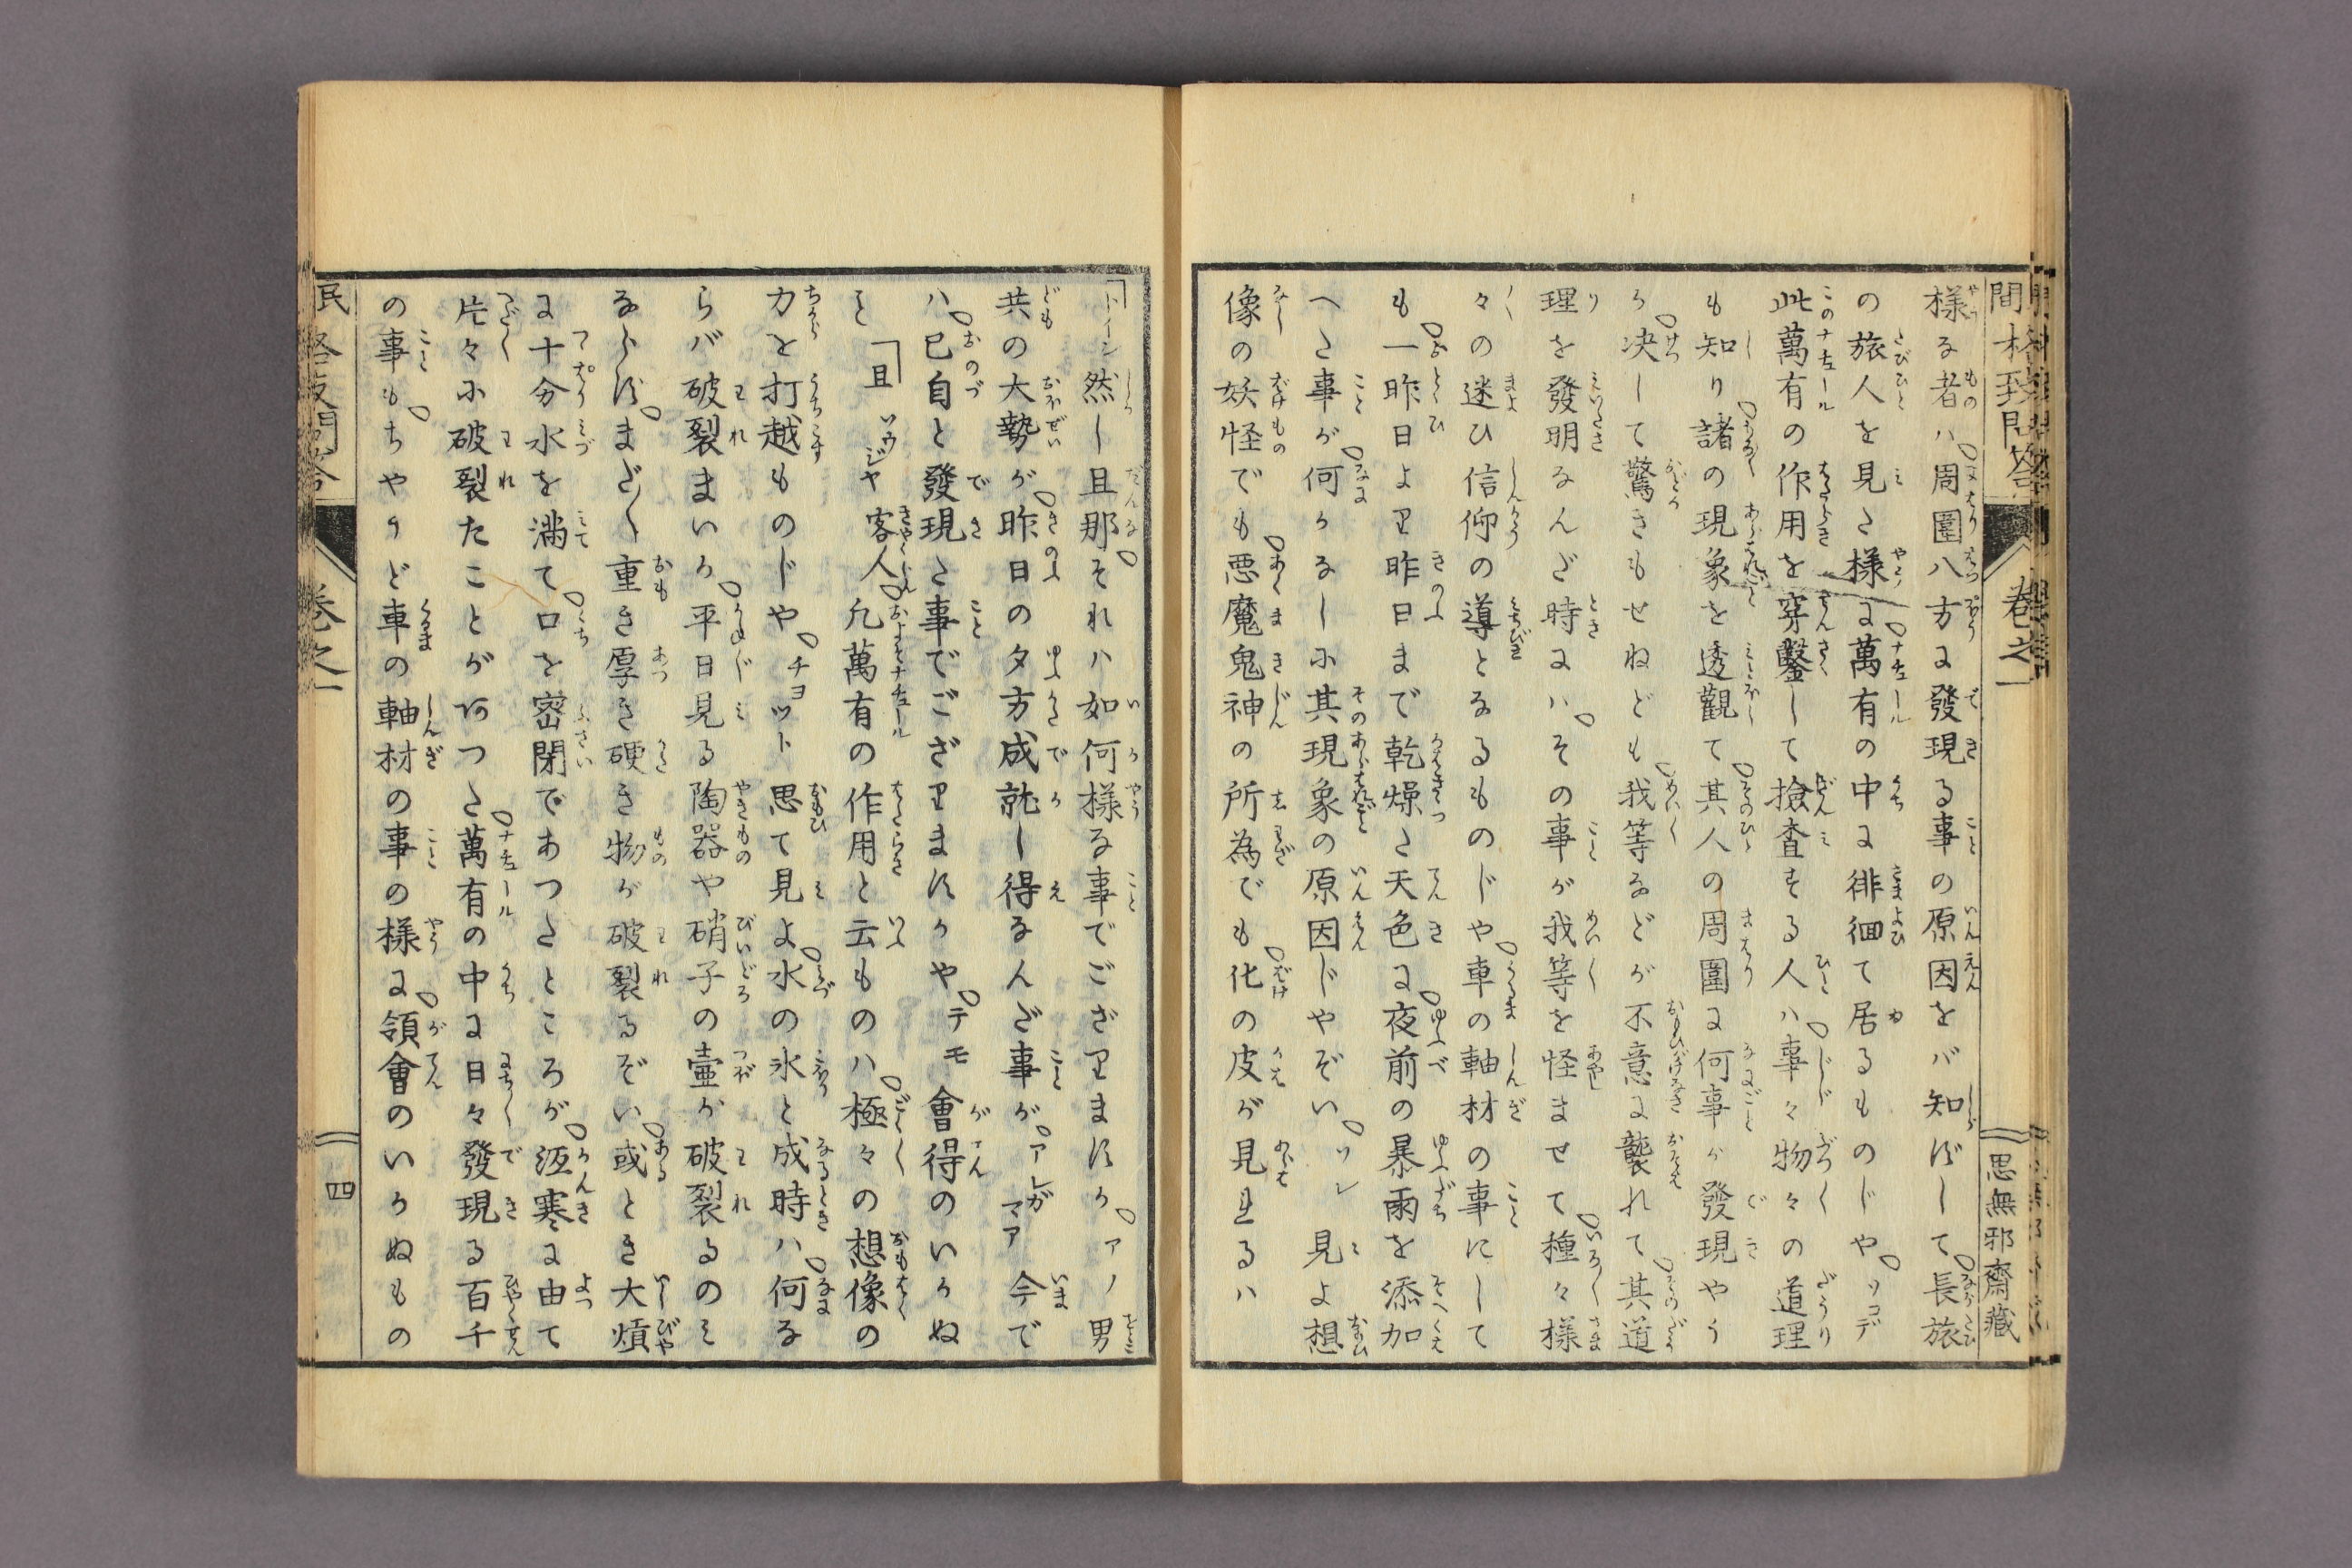 民間格致問答
巻之一
思無邪齋藏
様な者ハ周圍八方に發現る事の原因をバ知ずして長旅
の旅人を見た様に萬有の中に徘徊て居るものじやソコデ
此萬有の作用を穿鑿して撿査する人ハ事々物々の道理
も知り諸の現象を透觀て其人の周圍に何事が發現やう
が决して驚きもせねども我等などが不意に襲れて其道
理を發明なんだ時にハその事が我等を怪ませて種々様
々の迷ひ信仰の導となるものじや車の軸材の事にして
も一昨日より昨日まで乾燥た天色に夜前の暴雨を添加
へた事が何かなしに其現象の原因じやぞいソレ見よ想
像の妖怪でも悪魔鬼神の所為でも化の皮が見えるハ
「トイシ然し且那それハ如何様な事でござりますかアノ男
共の大勢が昨日の夕方成就し得なんだ事がアレガマア今で
ハ已自と發現た事でござりますかやテモ會得のいかぬ
と「且ソウジヤ客人凡萬有の作用と云ものハ極々の想像の
力を打越ものじやチヨツト思て見よ水の氷と成時ハ何な
らバ破裂まいか平日見る陶器や硝子の壷が破裂るのミ
ならずまだ〳〵重き厚き硬き物が破裂るぞい或とき大熕
に十分水を滿て口を密閉であつたところが沍寒に由て
片々に破裂たことがあつた萬有の中に日々發現る百千
の事もちやうど車の軸材の事の様に領會のいかぬもの
巻之一
四